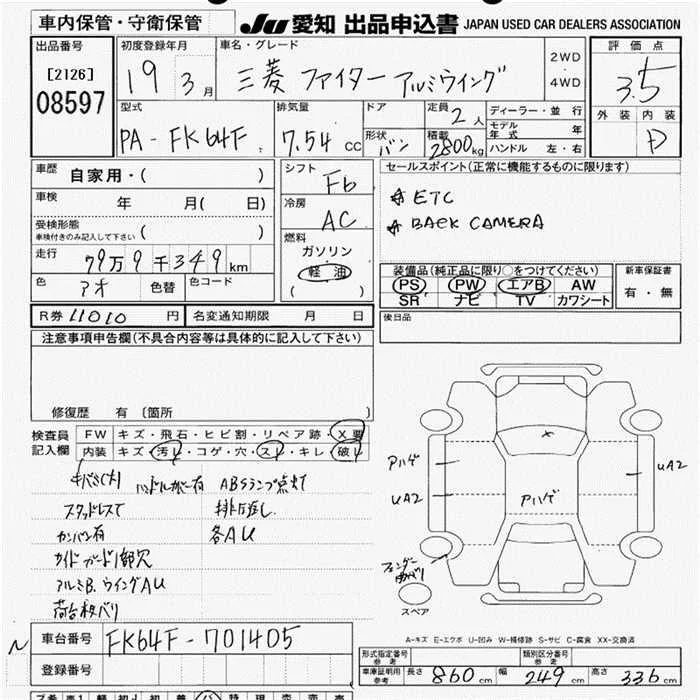 車内保管・守衛保管 JU 愛知 出品申込書 JAPAN USED CAR DEALERS ASSOCIATION
出品番号 初度登録年月 車名・グレード 2WD 評価点
[2126] 19 3月 三菱 ファイター アルミウイング 4WD 3.5
08597
型式 排気量 ドア 定員 2人 ディーラー・並行 外装 内装
PA-FK64F 7.54 cc 形状 バン 積載 2800kg モデル年式 年 D
ハンドル 左・右
車歴 自家用・( ) シフト F6 セールスポイント(正常に機能するものに限ります)
車検 年 月( 日) 冷房 AC ☆ ETC
受検形態 ( ) 燃料 ☆ BACK CAMERA
車検付きのみ記入して下さい ガソリン
走行 79万9千349km 軽油 装備品(純正品に限り○をつけてください) 新車保証書
色 アオ 色替 色コード ( ) PS PW エアB AW 有・無
SR ナビ TV カワシート
R券 11010円 名変通知期限 月 日 後日品
注意事項申告欄(不具合内容等は具体的に記入して下さい)
修復歴 有 〔箇所 〕
検査員 FW キズ・飛石・ヒビ割・リペア跡・X要
記入欄 内装 キズ・汚レ・コゲ・穴・スレ・キレ・破レ
キバミ(大) ハンドルカバー有 ABSランプ点灯て
スタッドレスて 排圧返し
カンバン有 各AU
サイドガード1部欠
アルミB.ウイングAU
荷台板バリ
アハゲ UA2
UA2 アハゲ
フェンダー
スペア
車台番号 FK64F-701405
登録番号
A-キズ E-エクボ U-凹み W-補修跡 S-サビ C-腐食 XX-交換済
形式指定番号 参考 類別区分番号 参考
車庫証明用 参考 長さ 860cm 幅 249cm 高さ 336cm